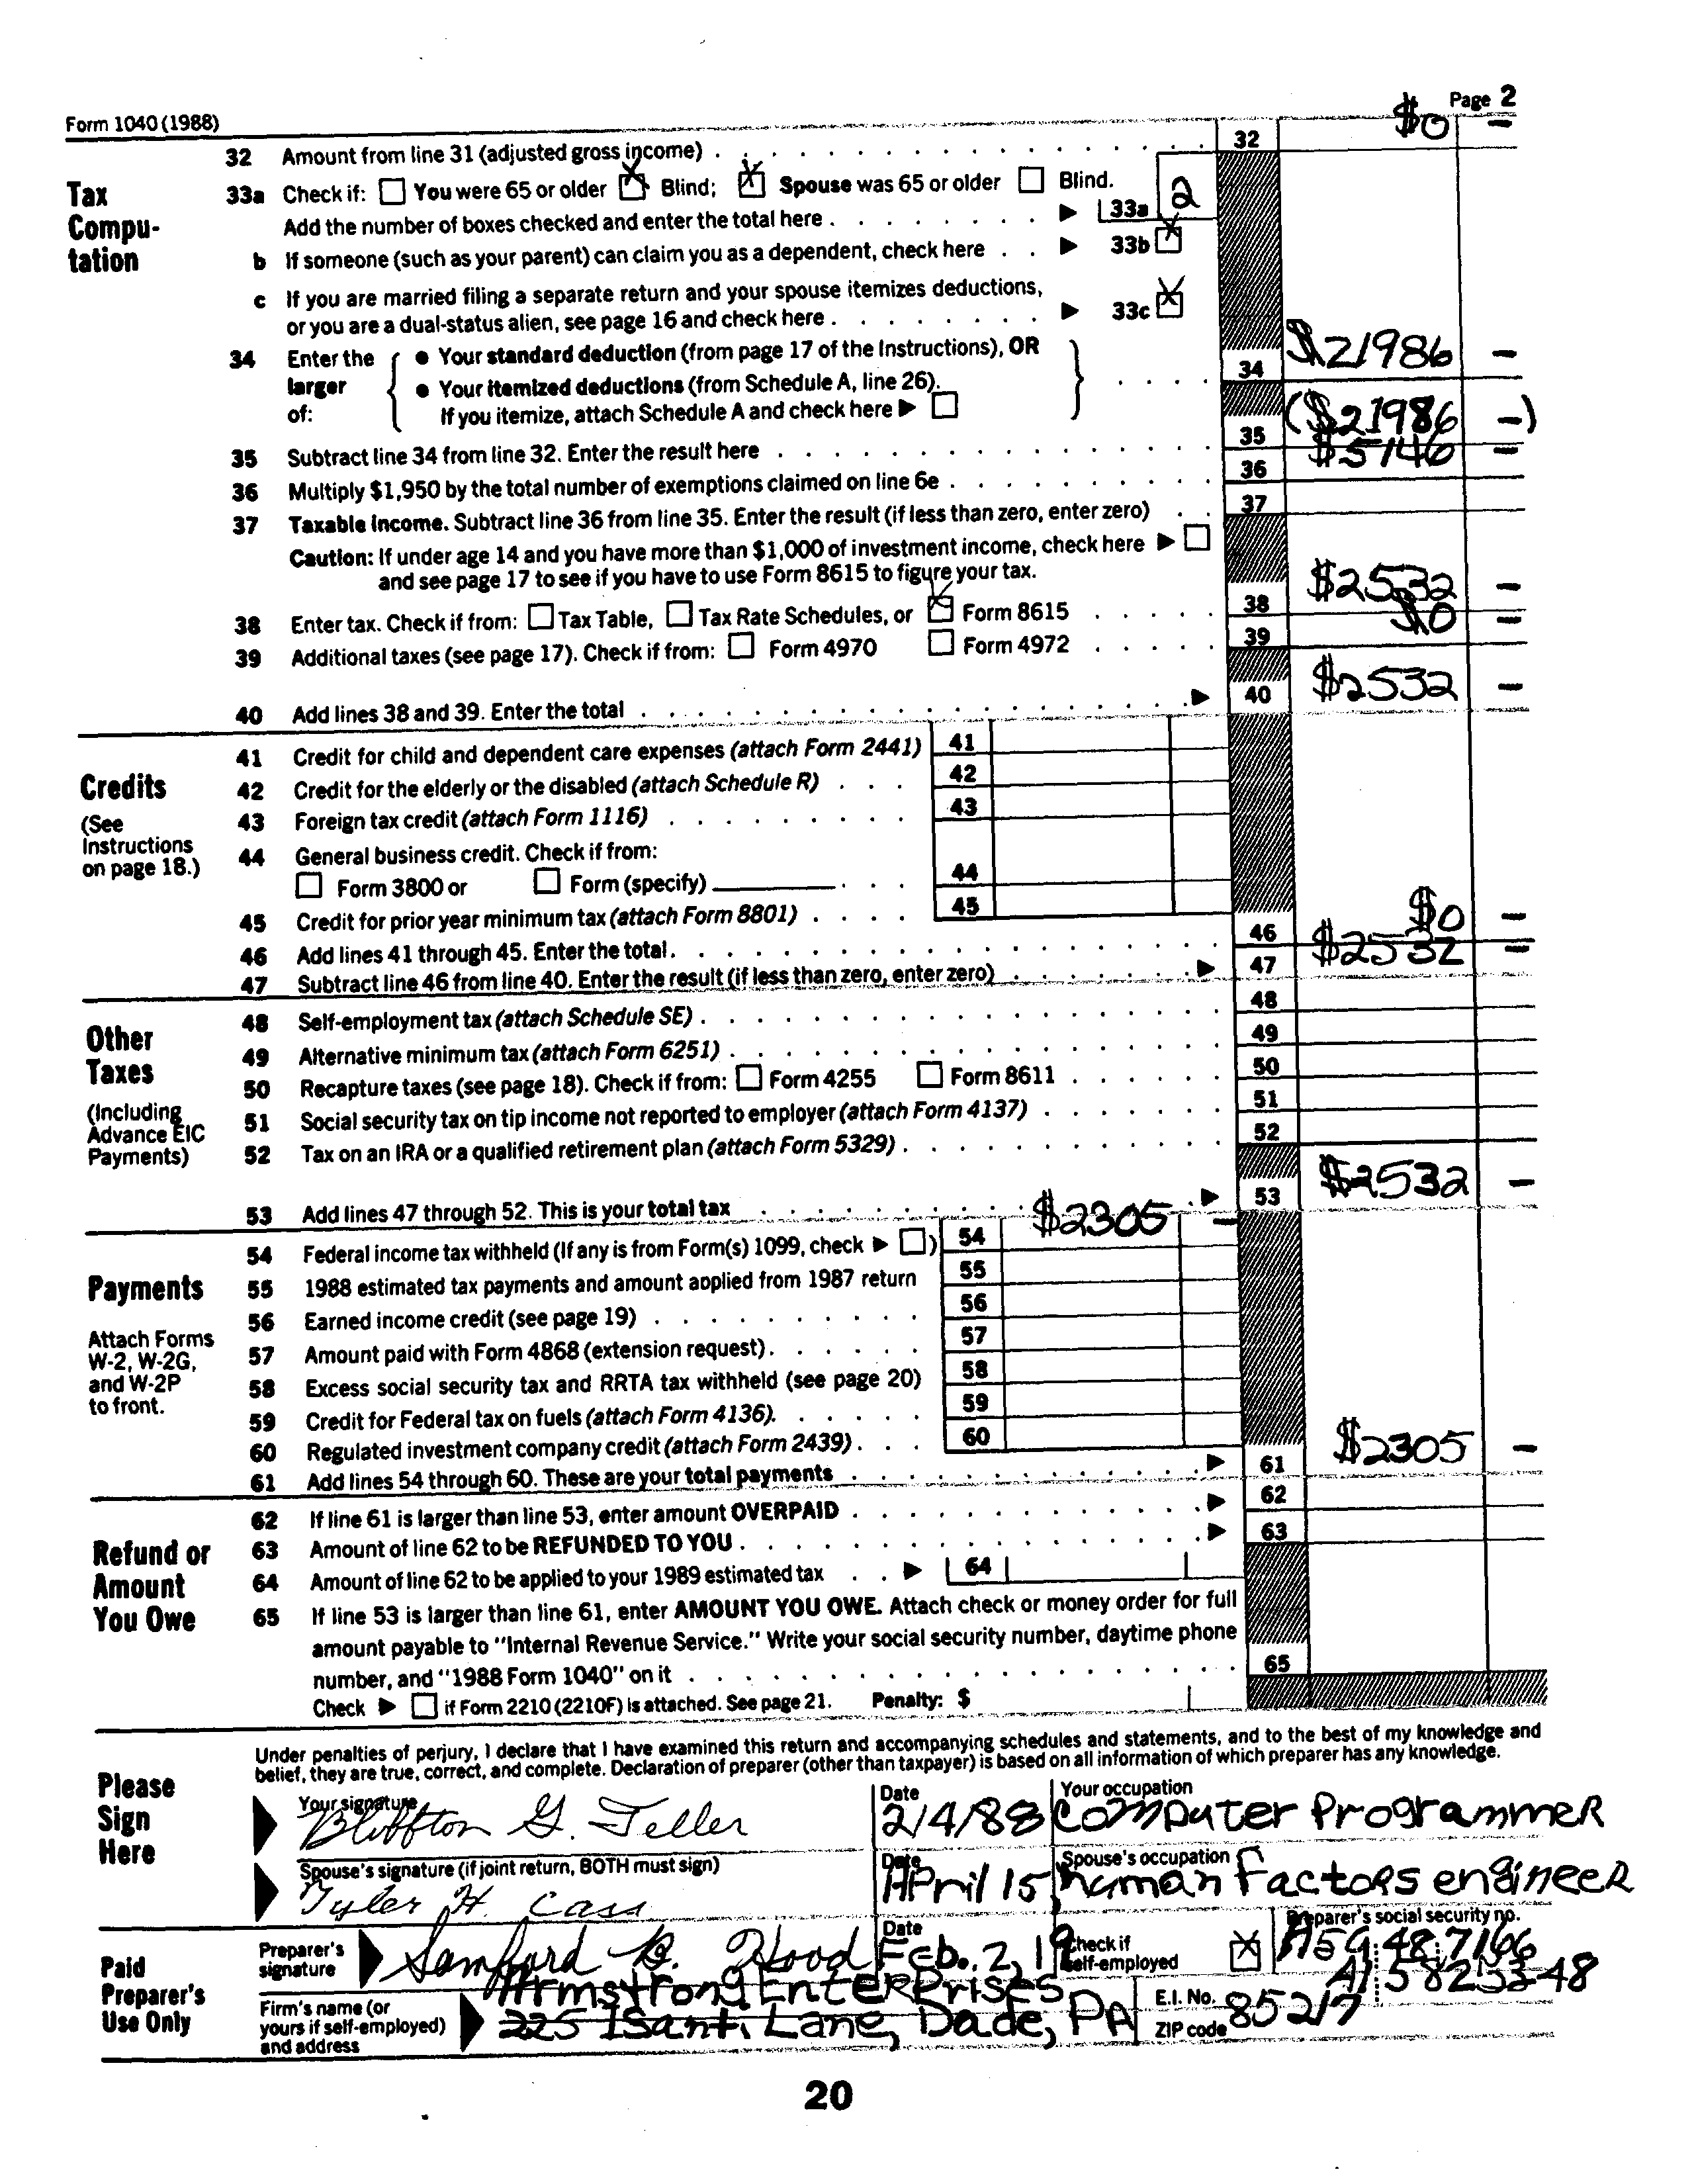 Form 1040 (1988) Page 2
32 Amount from line 31 (adjusted gross income) 32 $0 –
Tax Compu- tation
33a Check if: You were 65 or older X Blind; X Spouse was 65 or older Blind.
Add the number of boxes checked and enter the total here ▶ 33a 2
b If someone (such as your parent) can claim you as a dependent, check here ▶ 33b X
c If you are married filing a separate return and your spouse itemizes deductions,
or you are a dual-status alien, see page 16 and check here ▶ 33c X
34 Enter the larger of: { ● Your standard deduction (from page 17 of the Instructions), OR
● Your itemized deductions (from Schedule A, line 26). } 34 $21986 –
If you itemize, attach Schedule A and check here ▶
35 Subtract line 34 from line 32. Enter the result here 35 ($21986 –)
36 Multiply $1,950 by the total number of exemptions claimed on line 6e 36 $5146 –
37 Taxable income. Subtract line 36 from line 35. Enter the result (if less than zero, enter zero) 37
Caution: If under age 14 and you have more than $1,000 of investment income, check here ▶
and see page 17 to see if you have to use Form 8615 to figure your tax.
38 Enter tax. Check if from: Tax Table, Tax Rate Schedules, or X Form 8615 38 $2532 –
39 Additional taxes (see page 17). Check if from: Form 4970 Form 4972 39 $0 –
40 Add lines 38 and 39. Enter the total ▶ 40 $2532 –
Credits
(See Instructions on page 18.)
41 Credit for child and dependent care expenses (attach Form 2441) 41
42 Credit for the elderly or the disabled (attach Schedule R) 42
43 Foreign tax credit (attach Form 1116) 43
44 General business credit. Check if from:
Form 3800 or Form (specify) 44
45 Credit for prior year minimum tax (attach Form 8801) 45
46 Add lines 41 through 45. Enter the total. 46 $0 –
47 Subtract line 46 from line 40. Enter the result (if less than zero, enter zero) ▶ 47 $2532 –
Other Taxes
(Including Advance EIC Payments)
48 Self-employment tax (attach Schedule SE) 48
49 Alternative minimum tax (attach Form 6251) 49
50 Recapture taxes (see page 18). Check if from: Form 4255 Form 8611 50
51 Social security tax on tip income not reported to employer (attach Form 4137) 51
52 Tax on an IRA or a qualified retirement plan (attach Form 5329) 52
53 Add lines 47 through 52. This is your total tax ▶ 53 $2532 –
Payments
Attach Forms W-2, W-2G, and W-2P to front.
54 Federal income tax withheld (If any is from Form(s) 1099, check ▶ ) 54 $2305 –
55 1988 estimated tax payments and amount applied from 1987 return 55
56 Earned income credit (see page 19) 56
57 Amount paid with Form 4868 (extension request) 57
58 Excess social security tax and RRTA tax withheld (see page 20) 58
59 Credit for Federal tax on fuels (attach Form 4136). 59
60 Regulated investment company credit (attach Form 2439) 60
61 Add lines 54 through 60. These are your total payments ▶ 61 $2305 –
Refund or Amount You Owe
62 If line 61 is larger than line 53, enter amount OVERPAID ▶ 62
63 Amount of line 62 to be REFUNDED TO YOU ▶ 63
64 Amount of line 62 to be applied to your 1989 estimated tax ▶ 64
65 If line 53 is larger than line 61, enter AMOUNT YOU OWE. Attach check or money order for full
amount payable to "Internal Revenue Service." Write your social security number, daytime phone
number, and "1988 Form 1040" on it 65
Check ▶ if Form 2210 (2210F) is attached. See page 21. Penalty: $
Please Sign Here
Under penalties of perjury, I declare that I have examined this return and accompanying schedules and statements, and to the best of my knowledge and
belief, they are true, correct, and complete. Declaration of preparer (other than taxpayer) is based on all information of which preparer has any knowledge.
Your signature Date Your occupation
Bluffton G. Teller 2/4/88 Computer Programmer
Spouse's signature (if joint return, BOTH must sign) Date Spouse's occupation
Tyler H. Cass April 15, human factors engineer
Paid Preparer's Use Only
Preparer's signature Samford B. Hood Date Feb. 2, 19 Check if self-employed X Preparer's social security no. A59 48 7166
Firm's name (or yours if self-employed) and address Armstrong Enterprises E.I. No. A1 5825348
225 Isanti Lane, Dade, PA ZIP code 85217
20